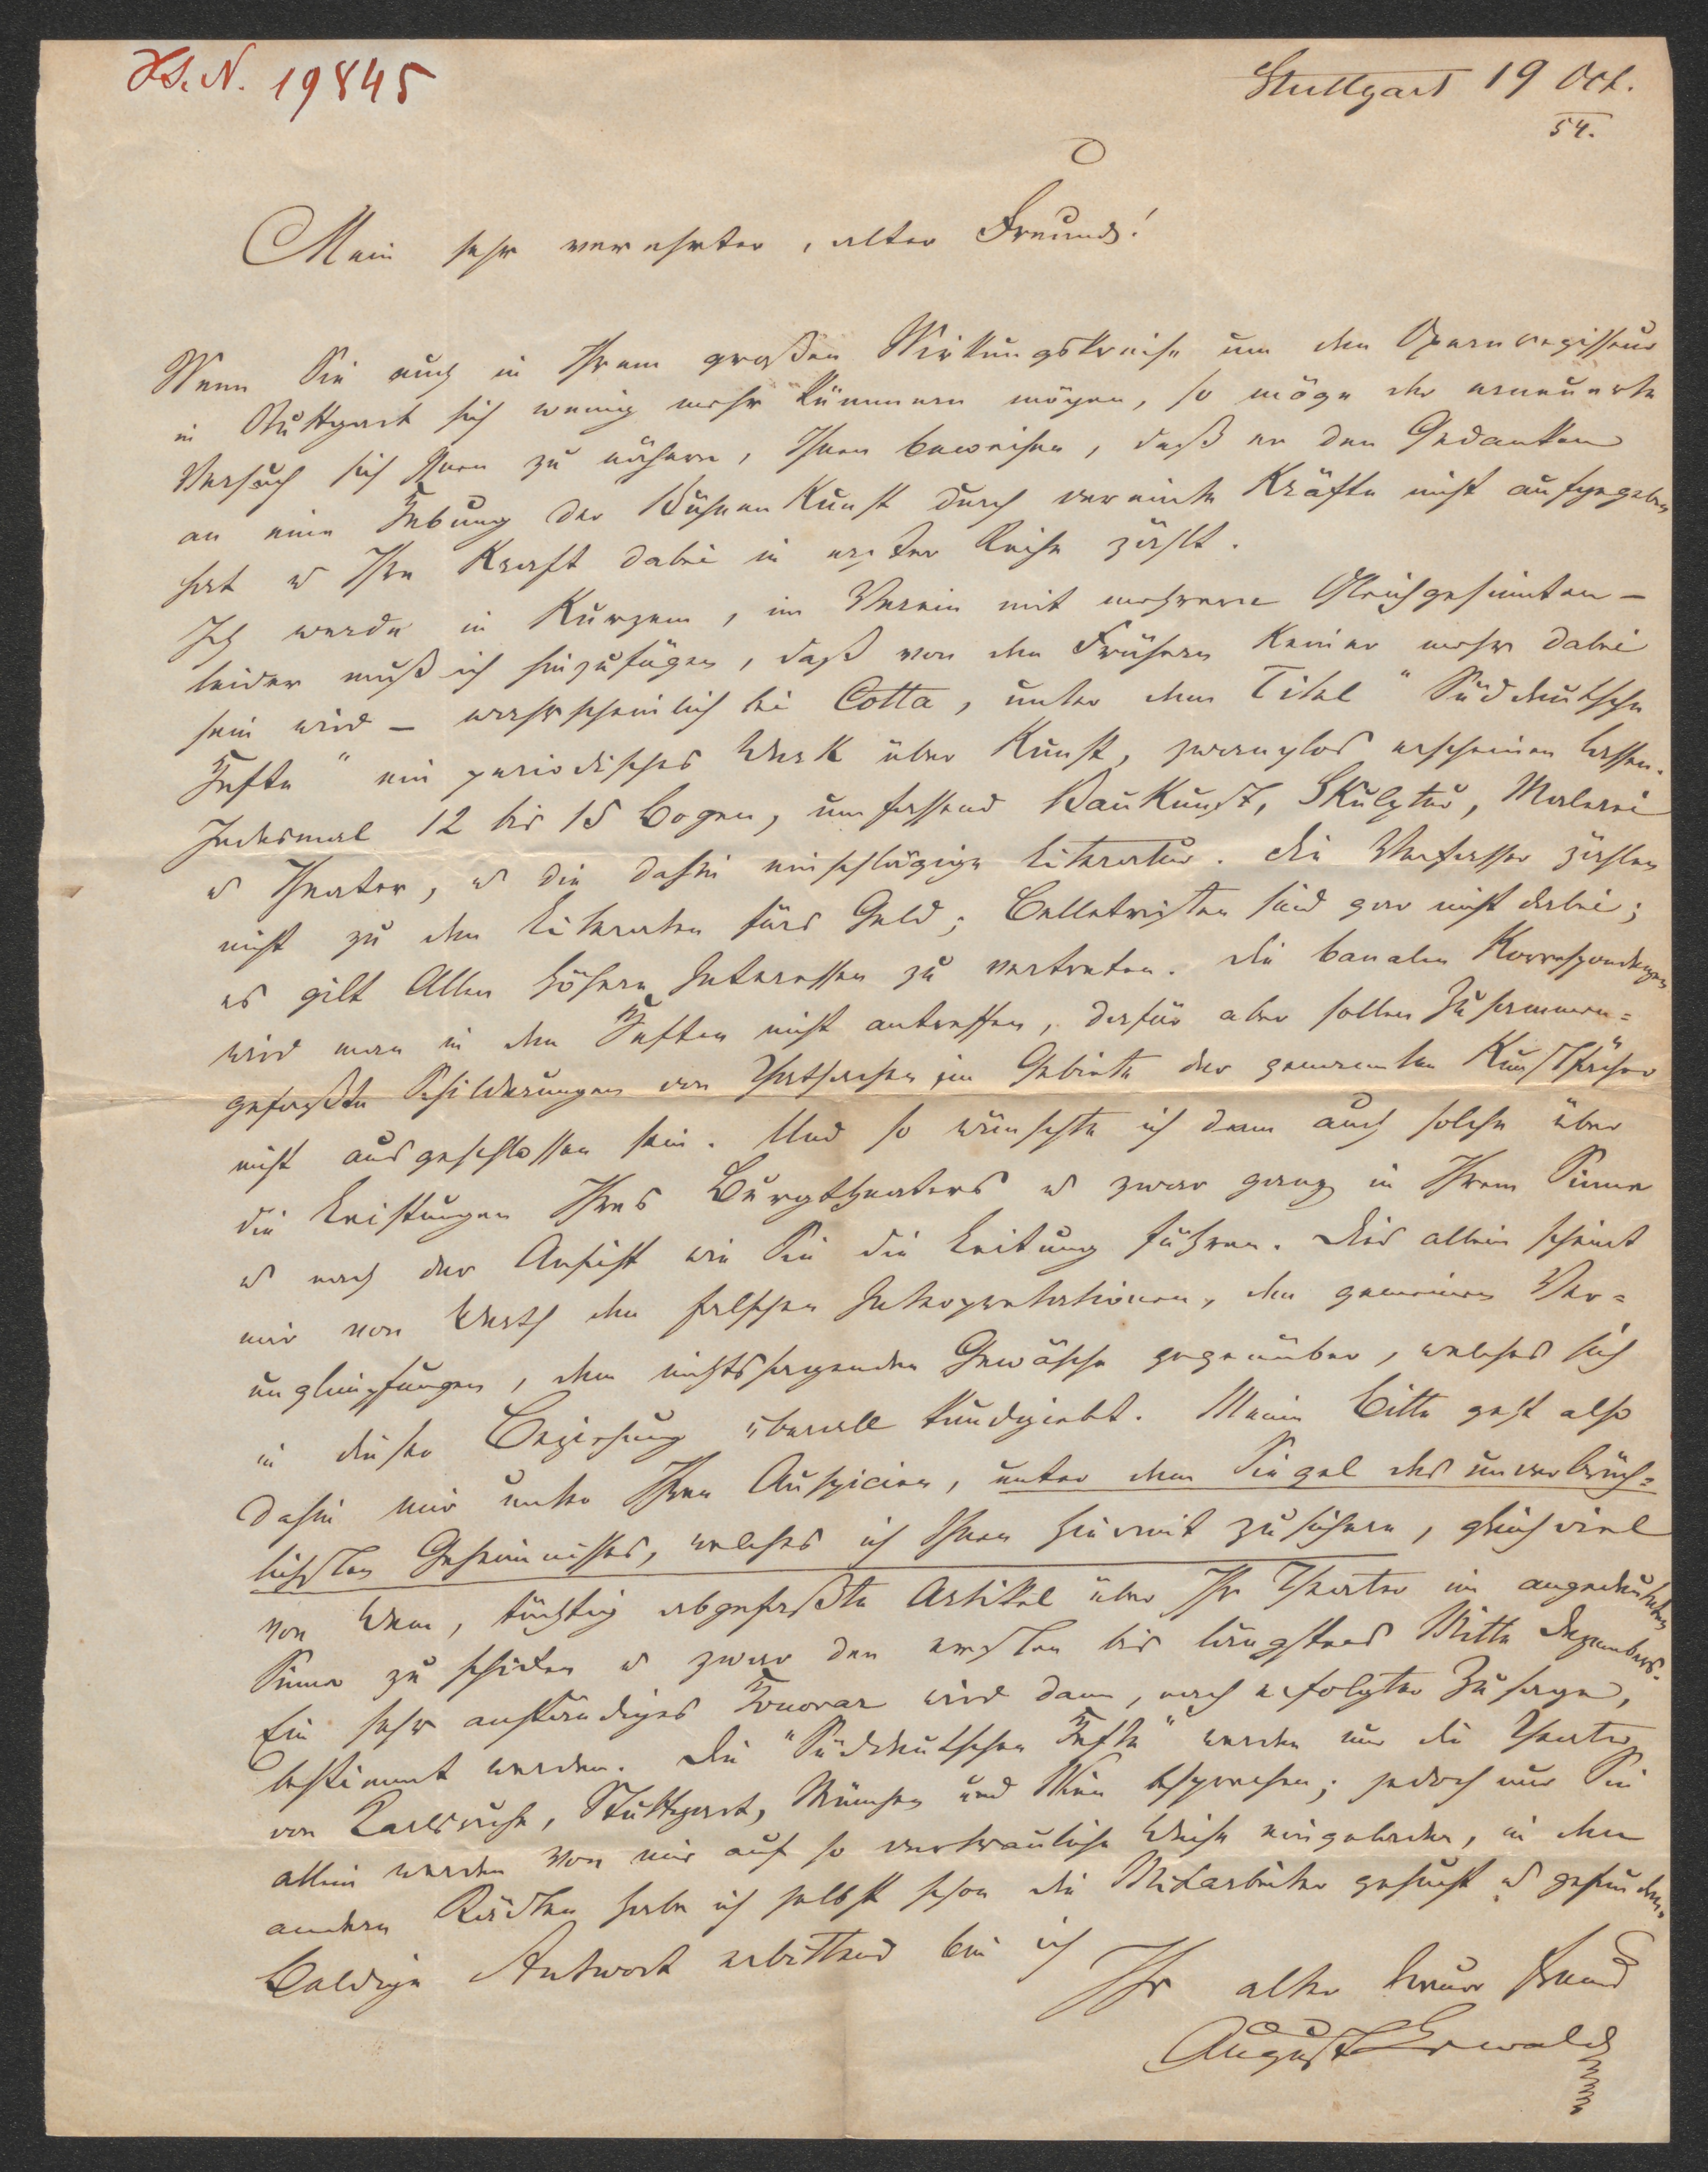 H.S.N. 19845
Stuttgart 19 Oct.
54.
Mein sehr verehrter, alter Freund!
Wenn Sie auch in Ihrem großen Wirkungskreise um den Opernregisseur
in Stuttgart sich wenig mehr kümmern mögen, so möge der erneuerte
Versuch sich Ihnen zu nähern, Ihnen beweisen, daß er den Gedanken
an eine Hebung der Bühnenkunst durch vereinte Kräfte nicht aufgegeben
hat u Ihre Kraft dabei in erster Reihe zählt.
Ich werde in Kurzem, im Verein mit mehreren Gleichgesinnten –
leider muß ich hinzufügen, daß von den Frühern Keiner mehr dabei
sein wird – wahrscheinlich bei Cotta, unter dem Titel "Süddeutsche
Hefte" ein periodisches Werk über Kunst, zwanglos erscheinen lassen.
Jedesmal 12 bis 15 Bogen, umfassend Baukunst, Skulptur, Malerei
u Theater, u die dahin einschlägige Literatur. Die Verfasser zählen
nicht zu den Literaten fürs Geld; Belletristen sind gar nicht dabei;
es gilt Allen höhere Interessen zu vertreten. Die banalen Korrespondenzen
wird man in den Heften nicht antreffen, dafür aber sollen Zusammen=
gefaßte Schilderungen von Thatsachen im Gebiete der genannten Kunstfächer
nicht ausgeschlossen sein. Und so wünschte ich denn auch solche über
die Leistungen Ihres Burgtheaters u zwar ganz in Ihrem Sinne
u nach der Ansicht wie Sie die Leitung führen. Dies allein scheint
mir von Werth den falschen Interpretationen, den gemeinen Ver=
unglimpfungen, dem nichtssagenden Gewäsche gegenüber, welches sich
in dieser Beziehung überall kundgiebt. Meine Bitte geht also
dahin mir unter Ihren Auspicien, unter dem Siegel des unverbrüch=
lichsten Geheimnisses, welches ich Ihnen hiermit zusichere, gleichviel
von Wem, tüchtig abgefaßte Artikel über Ihr Theater im angedeuteten
Sinne zu schicken u zwar den ersten bis längstens Mitte Dezembers.
Ein sehr anständiges Honorar wird dann, nach erfolgter Zusage,
bestimmt werden. Die "Süddeutschen Hefte" werden nur die Theater
von Karlsruhe, Stuttgart, München und Wien besprechen; jedoch nur Sie
allein werden von mir auf so vertrauliche Weise eingeladen, in den
andern Städten habe ich selbst schon die Mitarbeiter gesucht u gefunden.
Baldige Antwort erbittend bin ich
Ihr alter treuer Freund
August Lewald